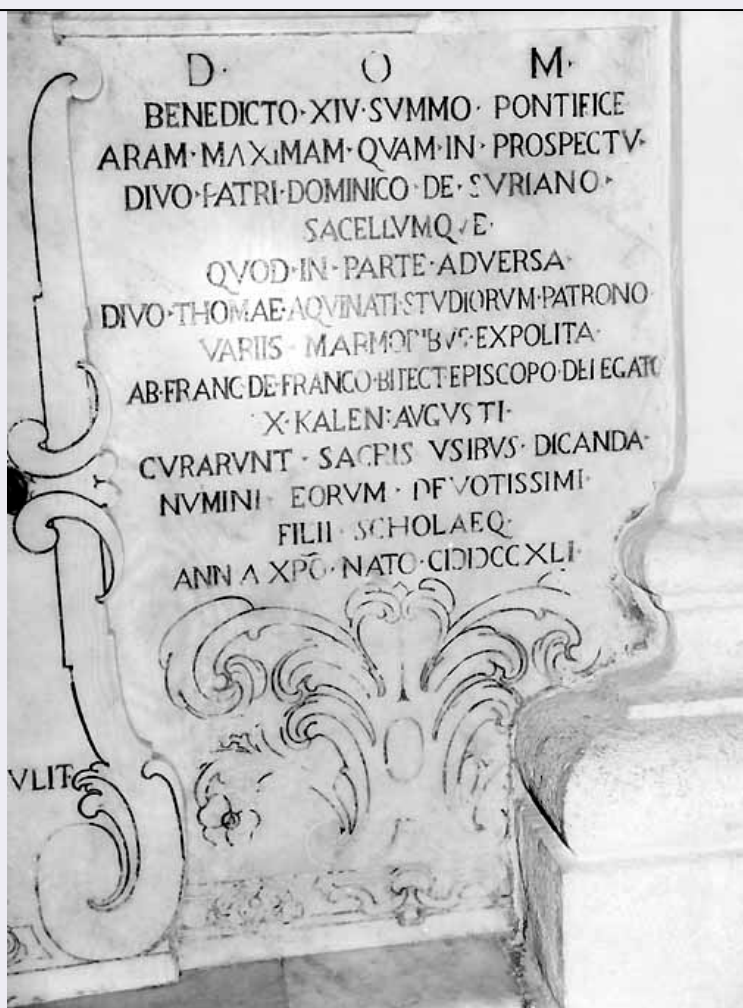 D· O M·
BENEDICTO·XIV·SVMMO·PONTIFICE
ARAM·MAXIMAM·QVAM·IN·PROSPECTV·
DIVO·PATRI·DOMINICO·DE·SVRIANO·
SACELLVMQVE·
QVOD·IN·PARTE·ADVERSA·
DIVO·THOMAE·AQVINATI·STVDIORVM·PATRONO
VARIIS·MARMORIBVS·EXPOLITA·
AB·FRANC·DE·FRANCO·BITECT·EPISCOPO·DELEGATO
X·KALEN:AVGVSTI·
CVRARVNT·SACRIS VSIBVS·DICANDA·
NVMINI·EORVM·DEVOTISSIMI·
FILII·SCHOLAEQ·
ANN A XPO·NATO·CIƆIƆCCXLI·
VLIT·